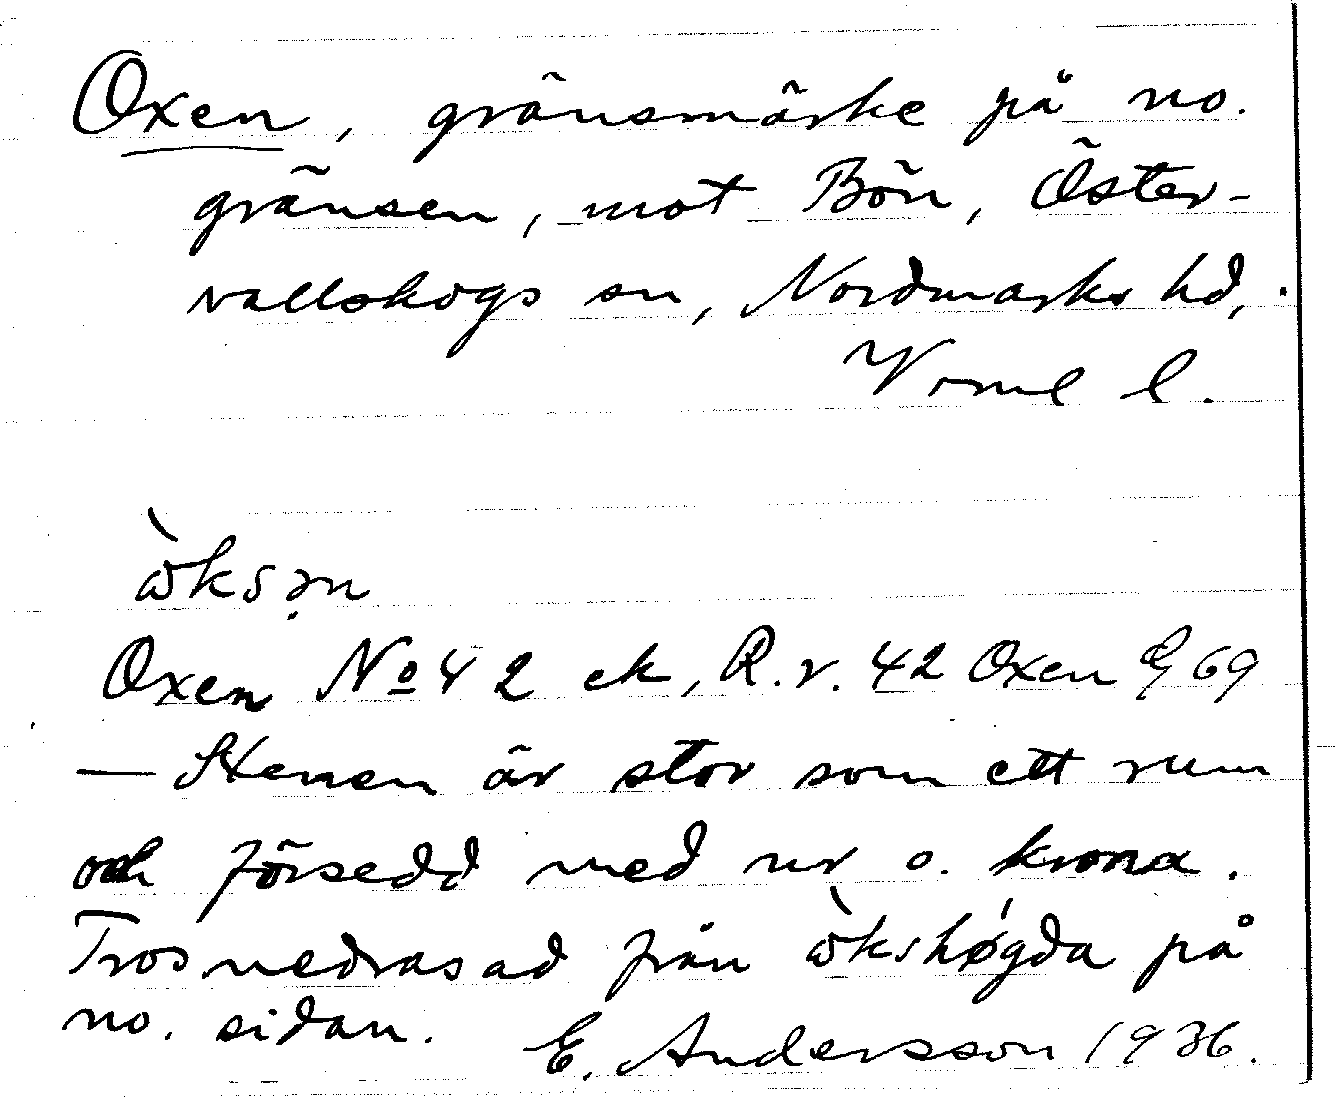 Oxen, gränsmärke på no.
gränsen, mot Bön, Öster-
vallskogs sn, Nordmarks hd,
Vrml l.
ò̀ksən
Oxen No 42 ek, R.r. 42 Oxen 69
— Stenen är stor som ett rum
och försedd med nr o. krona.
Tros nedrasad från òkshǿgda på
no. sidan. E. Andersson 1936.